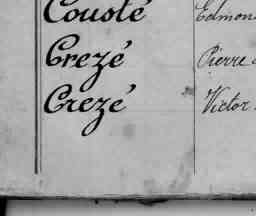 Cousté Edmon
Crezé Pierre
Crezé Victor